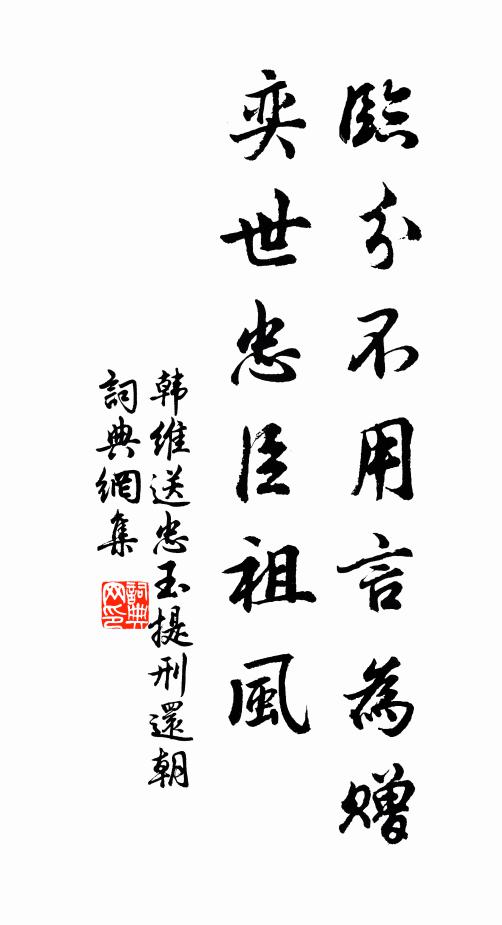 臨分不用言為贈
奕世忠臣祖風
韩維送忠玉提刑還朝
詞典網集
詞典网印